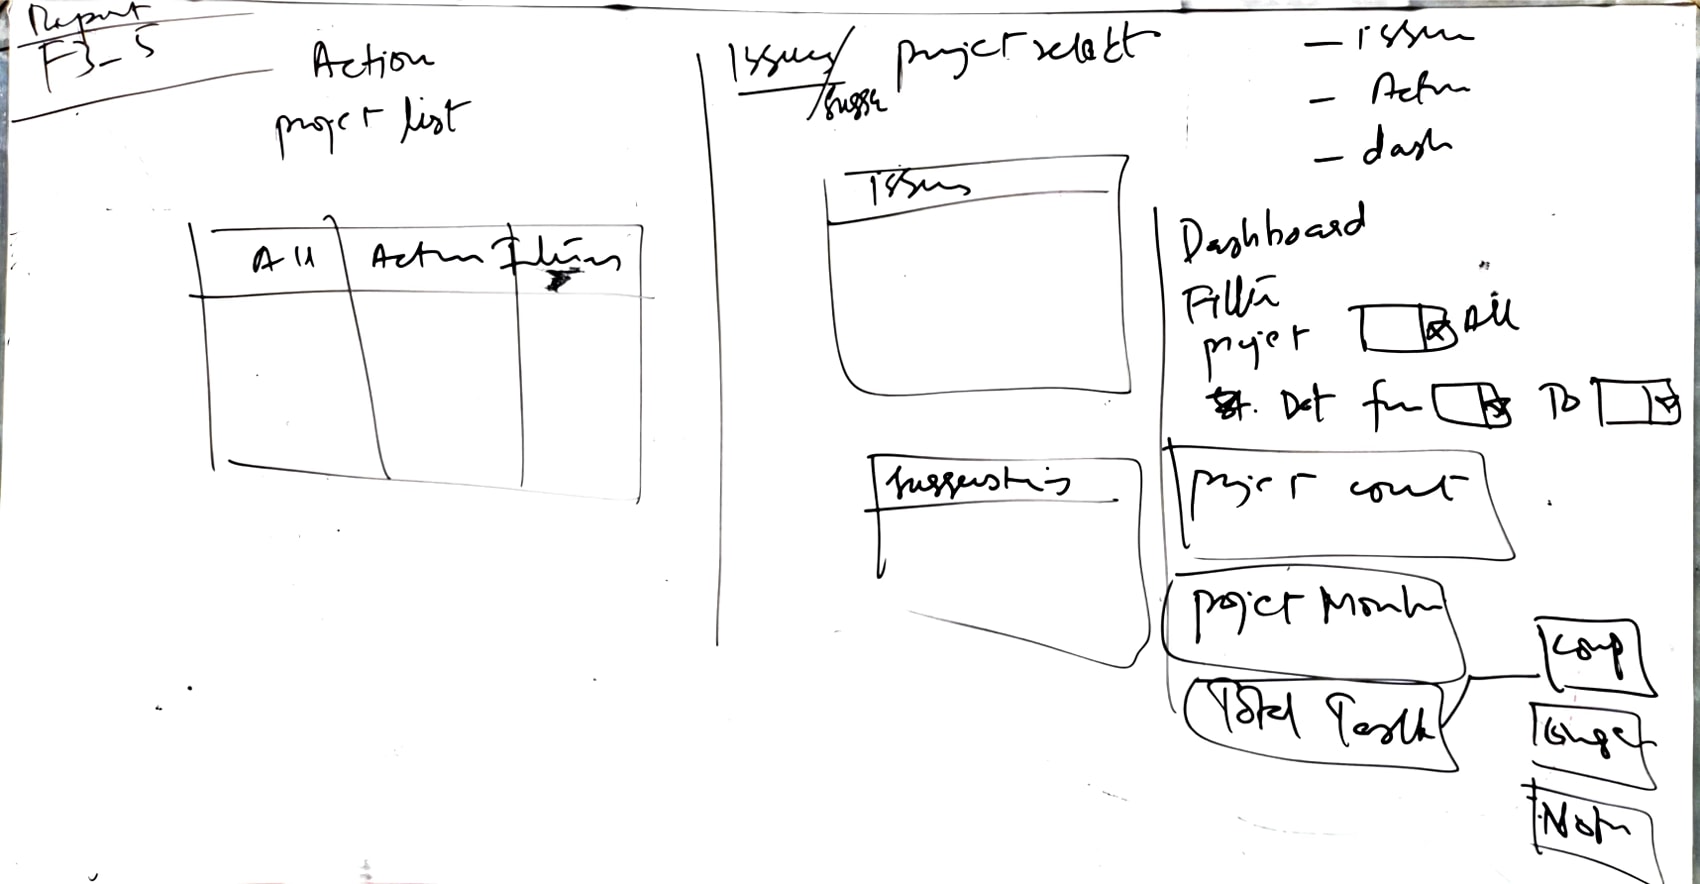 Report
F3-5
Action
project list
All Action
Issues/
sugge
project select
- issu
- Actn
- dash
issus
suggestis
Dashboard
Filter
project All
Dat fm To
project count
project Month
Total Task
comp